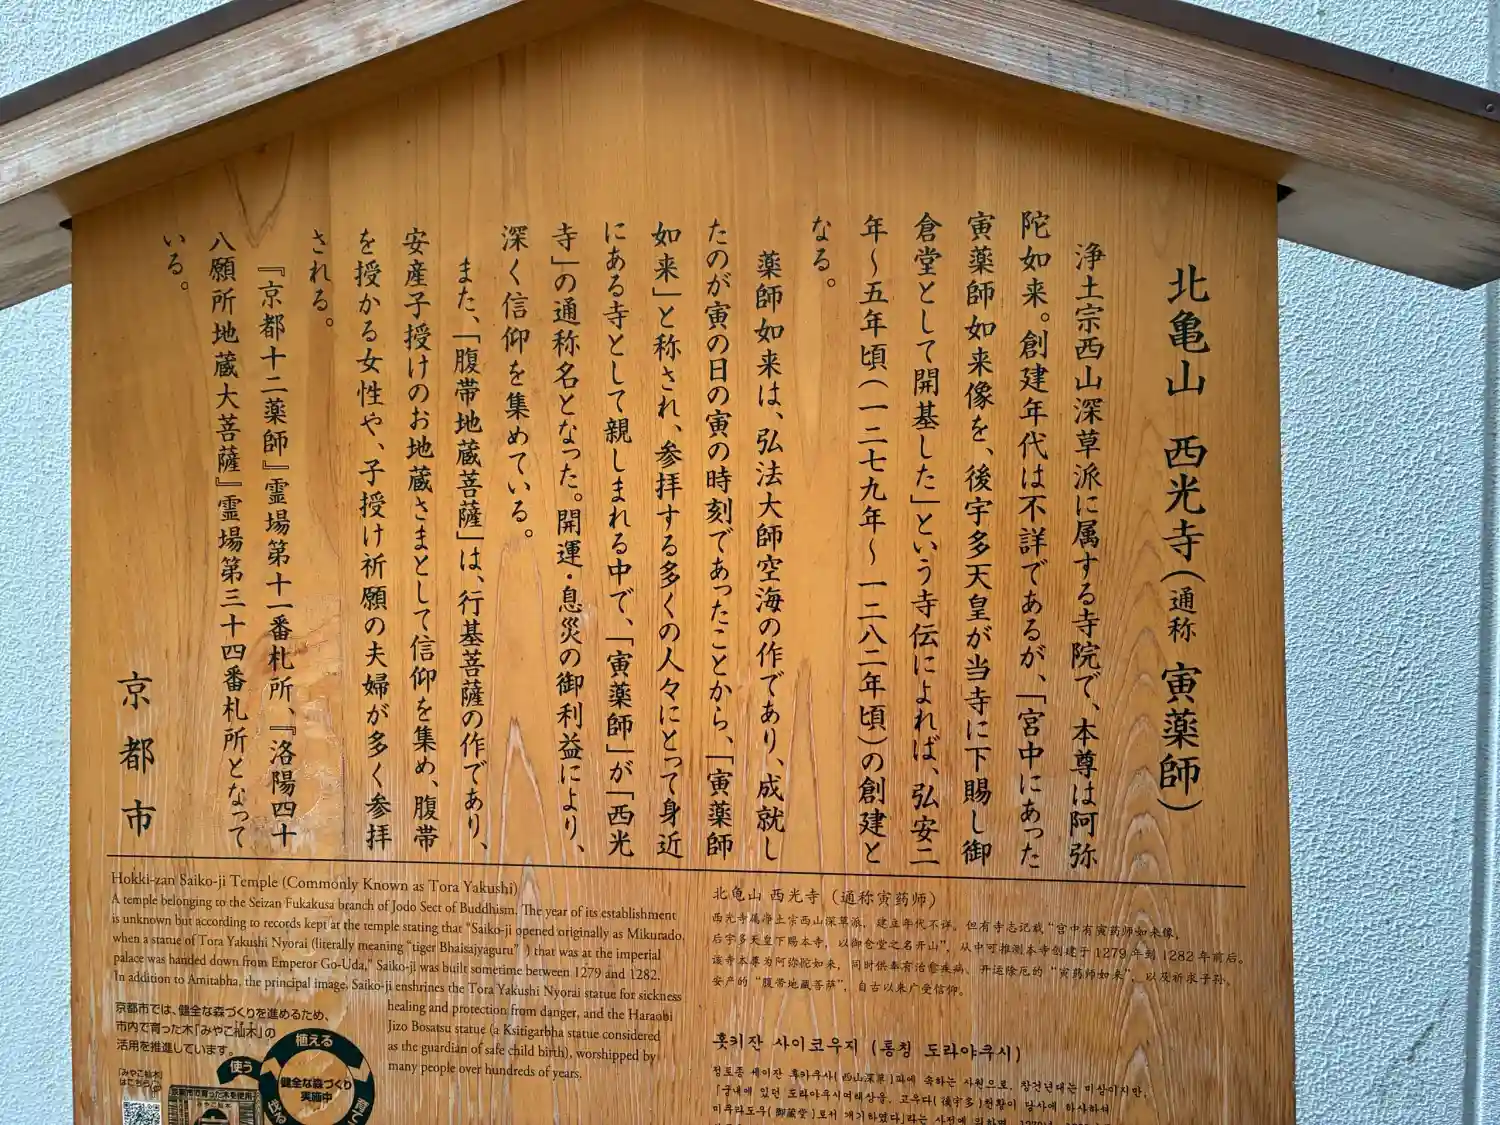 北亀山 西光寺(通称 寅薬師)
浄土宗西山深草派に属する寺院で、本尊は阿弥
陀如来。創建年代は不詳であるが、「宮中にあった
寅薬師如来像を、後宇多天皇が当寺に下賜し御
倉堂として開基した」という寺伝によれば、弘安二
年〜五年頃(一二七九年〜一二八二年頃)の創建と
なる。
薬師如来は、弘法大師空海の作であり、成就し
たのが寅の日の寅の時刻であったことから、「寅薬師
如来」と称され、参拝する多くの人々にとって身近
にある寺として親しまれる中で、「寅薬師」が「西光
寺」の通称名となった。開運・息災の御利益により、
深く信仰を集めている。
また、「腹帯地蔵菩薩」は、行基菩薩の作であり、
安産子授けのお地蔵さまとして信仰を集め、腹帯
を授かる女性や、子授け祈願の夫婦が多く参拝
される。
『京都十二薬師』霊場第十一番札所、『洛陽四十
八願所地蔵大菩薩』霊場第三十四番札所となって
いる。
京都市
Hokki-zan Saiko-ji Temple (Commonly Known as Tora Yakushi)
A temple belonging to the Seizan Fukakusa branch of Jodo Sect of Buddhism. The year of its establishment
is unknown but according to records kept at the temple stating that "Saiko-ji opened originally as Mikurado,
when a statue of Tora Yakushi Nyorai (literally meaning "tiger Bhaisajyaguru" ) that was at the imperial
palace was handed down from Emperor Go-Uda," Saiko-ji was built sometime between 1279 and 1282.
In addition to Amitabha, the principal image, Saiko-ji enshrines the Tora Yakushi Nyorai statue for sickness
healing and protection from danger, and the Haraobi
Jizo Bosatsu statue (a Ksitigarbha statue considered
as the guardian of safe child birth), worshipped by
many people over hundreds of years.
京都市では、健全な森づくりを進めるため、
市内で育った木「みやこ杣木」の
活用を推進しています。
「みやこ杣木」
はこちら
植える
使う
健全な森づくり
実施中
北龟山 西光寺(通称寅药师)
西光寺属净土宗西山深草派,建立年代不详。但有寺志记载“宫中有寅药师如来像,
后宇多天皇下赐本寺,以御仓堂之名开山”,从中可推测本寺创建于1279年到1282年前后。
该寺本尊为阿弥陀如来,同时供奉有治愈疾病、开运除厄的“寅药师如来”,以及祈求子孙、
安产的“腹带地藏菩萨”,自古以来广受信仰。
홋키잔 사이코우지 (통칭 도라야쿠시)
정토종 세이잔 후카쿠사(西山深草)파에 속하는 사원으로, 창건년대는 미상이지만,
「궁내에 있던 도라야쿠시여래상을, 고우다(後宇多)천황이 당사에 하사하셔
미쿠라도우(御蔵堂)로서 개기하였다」라는